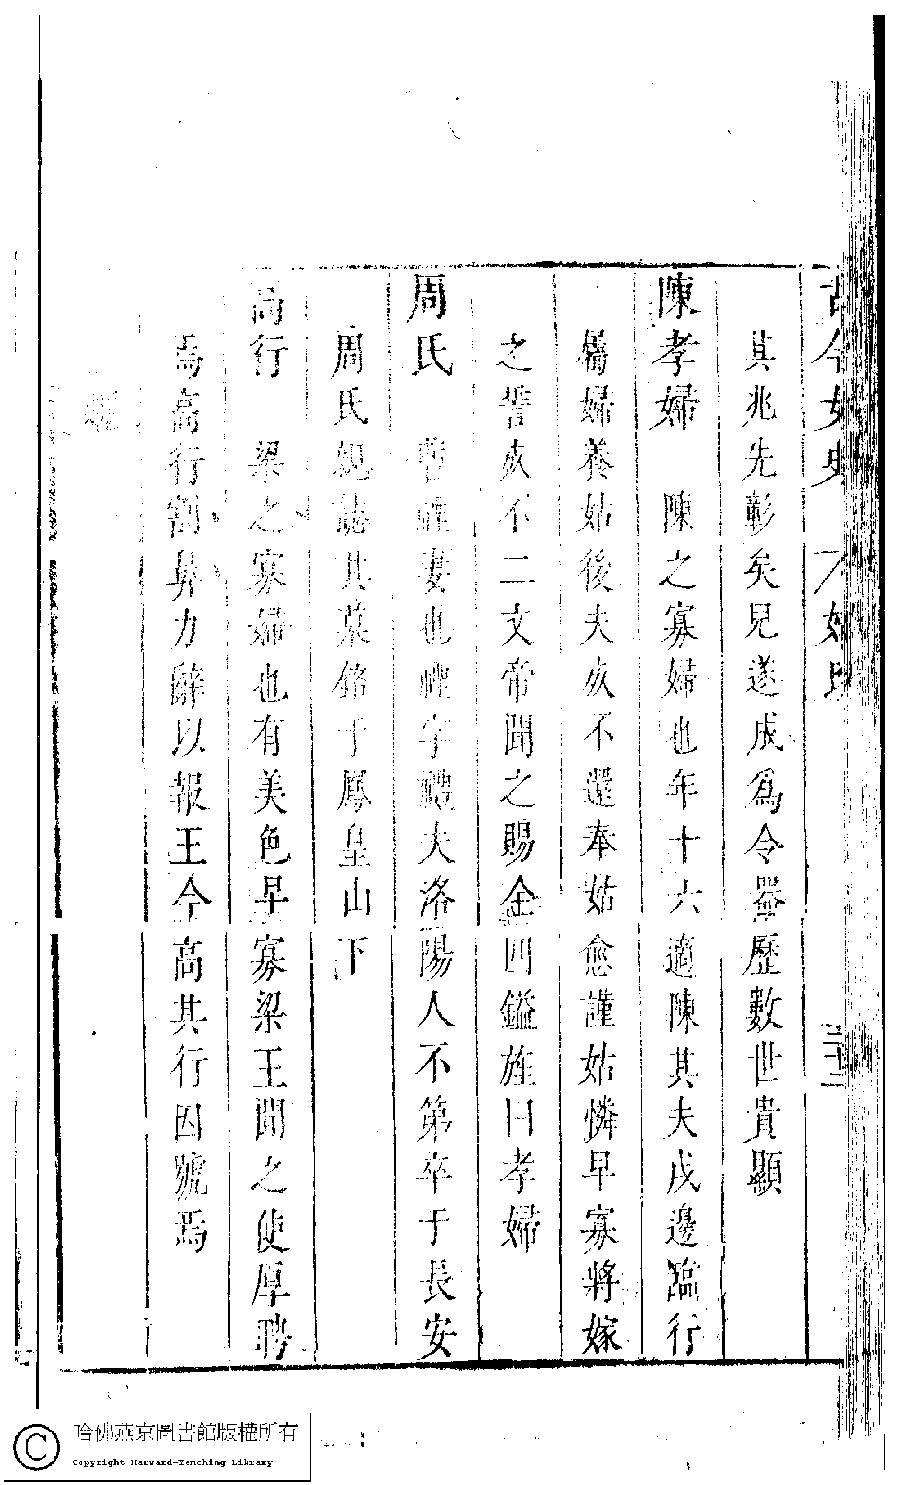 古今女史 姓氏
其兆先彰矣兒遂成爲令器歷數世貴顯
陳孝婦 陳之寡婦也年十六適陳其夫戍邊臨行
囑婦養姑後夫死不還奉姑愈謹姑憐早寡將嫁
之誓死不二文帝聞之賜金四鎰旌曰孝婦
周氏 妻也 字 大洛陽人不第卒于長安
周氏親誌其墓銘于鳳皇山下
高行 梁之寡婦也有美色早寡梁王聞之使厚聘
焉高行割鼻力辭以報王令高其行因號焉
哈佛燕京圖書館版權所有
Copyright Harvard-Yenching Library